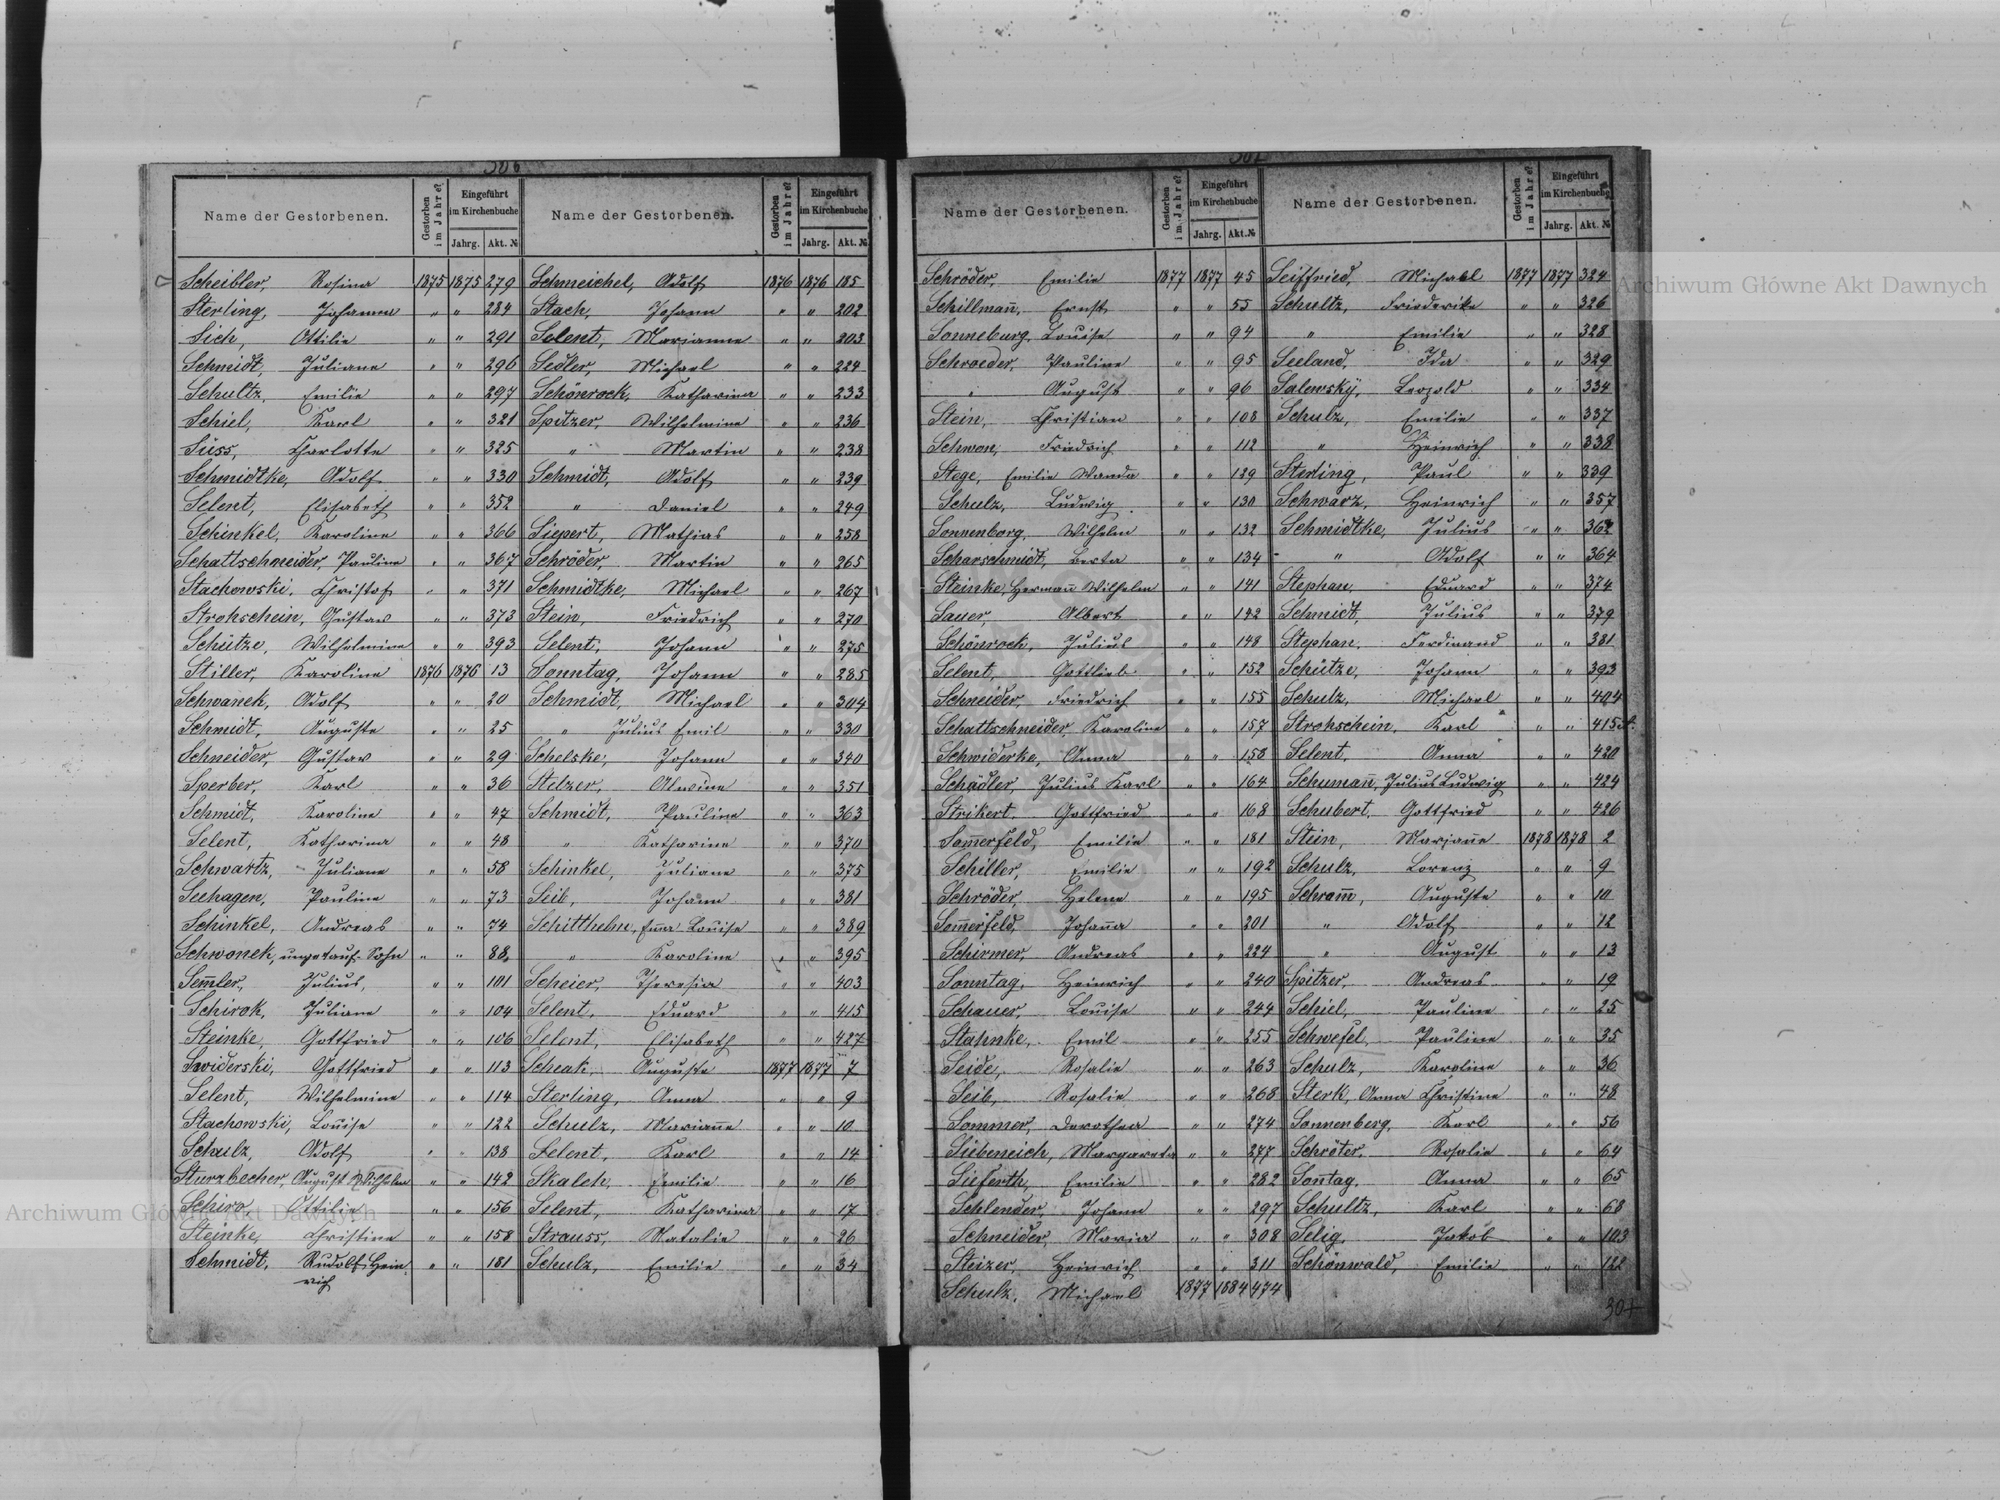 306
Name der Gestorbenen. Gestorben im Jahre? Eingeführt im Kirchenbuche Jahrg. Akt. №
Scheibler, Rosina 1875 1875 279
Sterling, Johanna " " 284
Sich, Ottilie " " 291
Schmidt, Juliane " " 296
Schultz, Emilie " " 297
Schiel, Karl " " 321
Süss, Charlotte " " 325
Schmidtke, Adolf " " 330
Selent, Elisabeth " " 352
Schinkel, Karoline " " 366
Schattschneider, Pauline " " 367
Stachowski, Christof " " 371
Strohschein, Gustav " " 373
Schütze, Wilhelmine " " 393
Stiller, Karoline 1876 1876 13
Schwanek, Adolf " " 20
Schmidt, Auguste " " 25
Schneider, Gustav " " 29
Sperber, Karl " " 36
Schmidt, Karoline " " 47
Selent, Katharina " " 48
Schwartz, Juliane " " 58
Seehagen, Pauline " " 73
Schinkel, Andreas " " 74
Schwonek, ungetauf. Sohn " " 88
Sem̄ler, Julius, " " 101
Schirok, Juliane " " 104
Steinke, Gottfried " " 106
Swiderski, Gottfried " " 113
Selent, Wilhelmine " " 114
Stachowski, Louise " " 122
Schulz, Adolf " " 138
Sturzbecher, August Wilhelm " " 142
Schiro, Ottilie " " 156
Steinke, Christine " " 158
Schmidt, Rudolf Hein- " " 181
rich
Name der Gestorbenen. Gestorben im Jahre? Eingeführt im Kirchenbuche Jahrg. Akt. №
Schmeichel, Adolf 1876 1876 185
Stach, Johann " " 202
Selent, Marianne " " 203
Sedler, Michael " " 224
Schönrock, Katharina " " 233
Spitzer, Wilhelmine " " 236
" Martin " " 238
Schmidt, Adolf " " 239
" Daniel " " 249
Siepert, Mathias " " 258
Schröder, Martin " " 265
Schmidtke, Michael " " 267
Stein, Friedrich " " 270
Selent, Johann " " 275
Sonntag, Johann " " 285
Schmidt, Michael " " 304
" Julius Emil " " 330
Schelske, Johann " " 340
Stelzer, Olwine " " 351
Schmidt, Pauline " " 363
" Katharine " " 370
Schinkel, Juliane " " 375
Seib, Johann " " 381
Schitthelm, Em̄a Louise " " 389
" Karoline " " 395
Scheier, Theresia " " 403
Selent, Eduard " " 415
Selent, Elisabeth " " 427
Scheak, Auguste 1877 1877 7
Sterling, Anna " " 9
Schulz, Marian̄e " " 10
Selent, Karl " " 14
Skaleh, Emilie " " 16
Selent, Katharina " " 17
Strauss, Natalie " " 26
Schulz, Emilie " " 34
307
Name der Gestorbenen. Gestorben im Jahre? Eingeführt im Kirchenbuche Jahrg. Akt. №
Schröder, Emilie 1877 1877 45
Schillman̄, Ernst " " 55
Sonneburg, Louise " " 94
Schroeder, Pauline " " 95
" August " " 96
Stein, Christian " " 108
Schwan, Friedrich " " 112
Stege, Emilie Wanda " " 129
Schulz, Ludwig " " 130
Sonnenborg, Wilhelm " " 132
Scharschmidt, Berta " " 134
Steinke, Herman̄ Wilhelm " " 141
Sauer, Albert " " 142
Schönrock, Julius " " 148
Selent, Gottlieb " " 152
Schneider, Friedrich " " 155
Schattschneider, Karoline " " 157
Schwiderke, Anna " " 158
Schädler, Julius Karl " " 164
Strikert, Gottfried " " 168
Som̄erfeld, Emilie " " 181
Schiller, Emilie " " 192
Schröder, Helene " " 195
Som̄erfeld, Johan̄a " " 201
Schirmer, Andreas " " 224
Sonntag, Heinrich " " 240
Schauer, Louise " " 244
Stahnke, Emil " " 255
Seide, Rosalie " " 263
Seib, Rosalie " " 268
Sommer, Dorothea " " 274
Siebeneich, Margareta " " 277
Sieferth, Emilie " " 282
Schlender, Johann " " 297
Schneider, Maria " " 308
Steizer, Heinrich " " 311
Schulz, Michael 1877 1884 474
Name der Gestorbenen. Gestorben im Jahre? Eingeführt im Kirchenbuche Jahrg. Akt. №
Seiffried, Michael 1877 1877 324
Schultz, Friederike " " 326
" Emilie " " 328
Seeland, Ida " " 329
Salewsky, Leopold " " 334
Schulz, Emilie " " 337
" Heinrich " " 338
Sterling, Paul " " 339
Schwarz, Heinrich " " 357
Schmidtke, Julius " " 362
" Adolf " " 364
Stephan, Eduard " " 374
Schmidt, Julius " " 379
Stephan, Ferdinand " " 381
Schütze, Johann " " 393
Schulz, Michael " " 404
Strohschein, Karl " " 415
Selent, Anna " " 420
Schuman̄, Julius Ludwig " " 424
Schubert, Gottfried " " 426
Stein, Marjan̄e 1878 1878 2
Schulz, Lorenz " " 9
Schram̄, Auguste " " 10
" Adolf " " 12
" August " " 13
Spitzer, Andreas " " 19
Schiel, Pauline " " 25
Schwefel, Pauline " " 35
Schulz, Karoline " " 36
Sterk, Anna Christine " " 48
Sonnenberg, Karl " " 56
Schröter, Rosalie " " 64
Son̄tag, Anna " " 65
Schultz, Karl " " 68
Selig, Jakob " " 103
Schönwald, Emilie " " 122
Archiwum Główne Akt Dawnych
Archiwum Główne Akt Dawnych